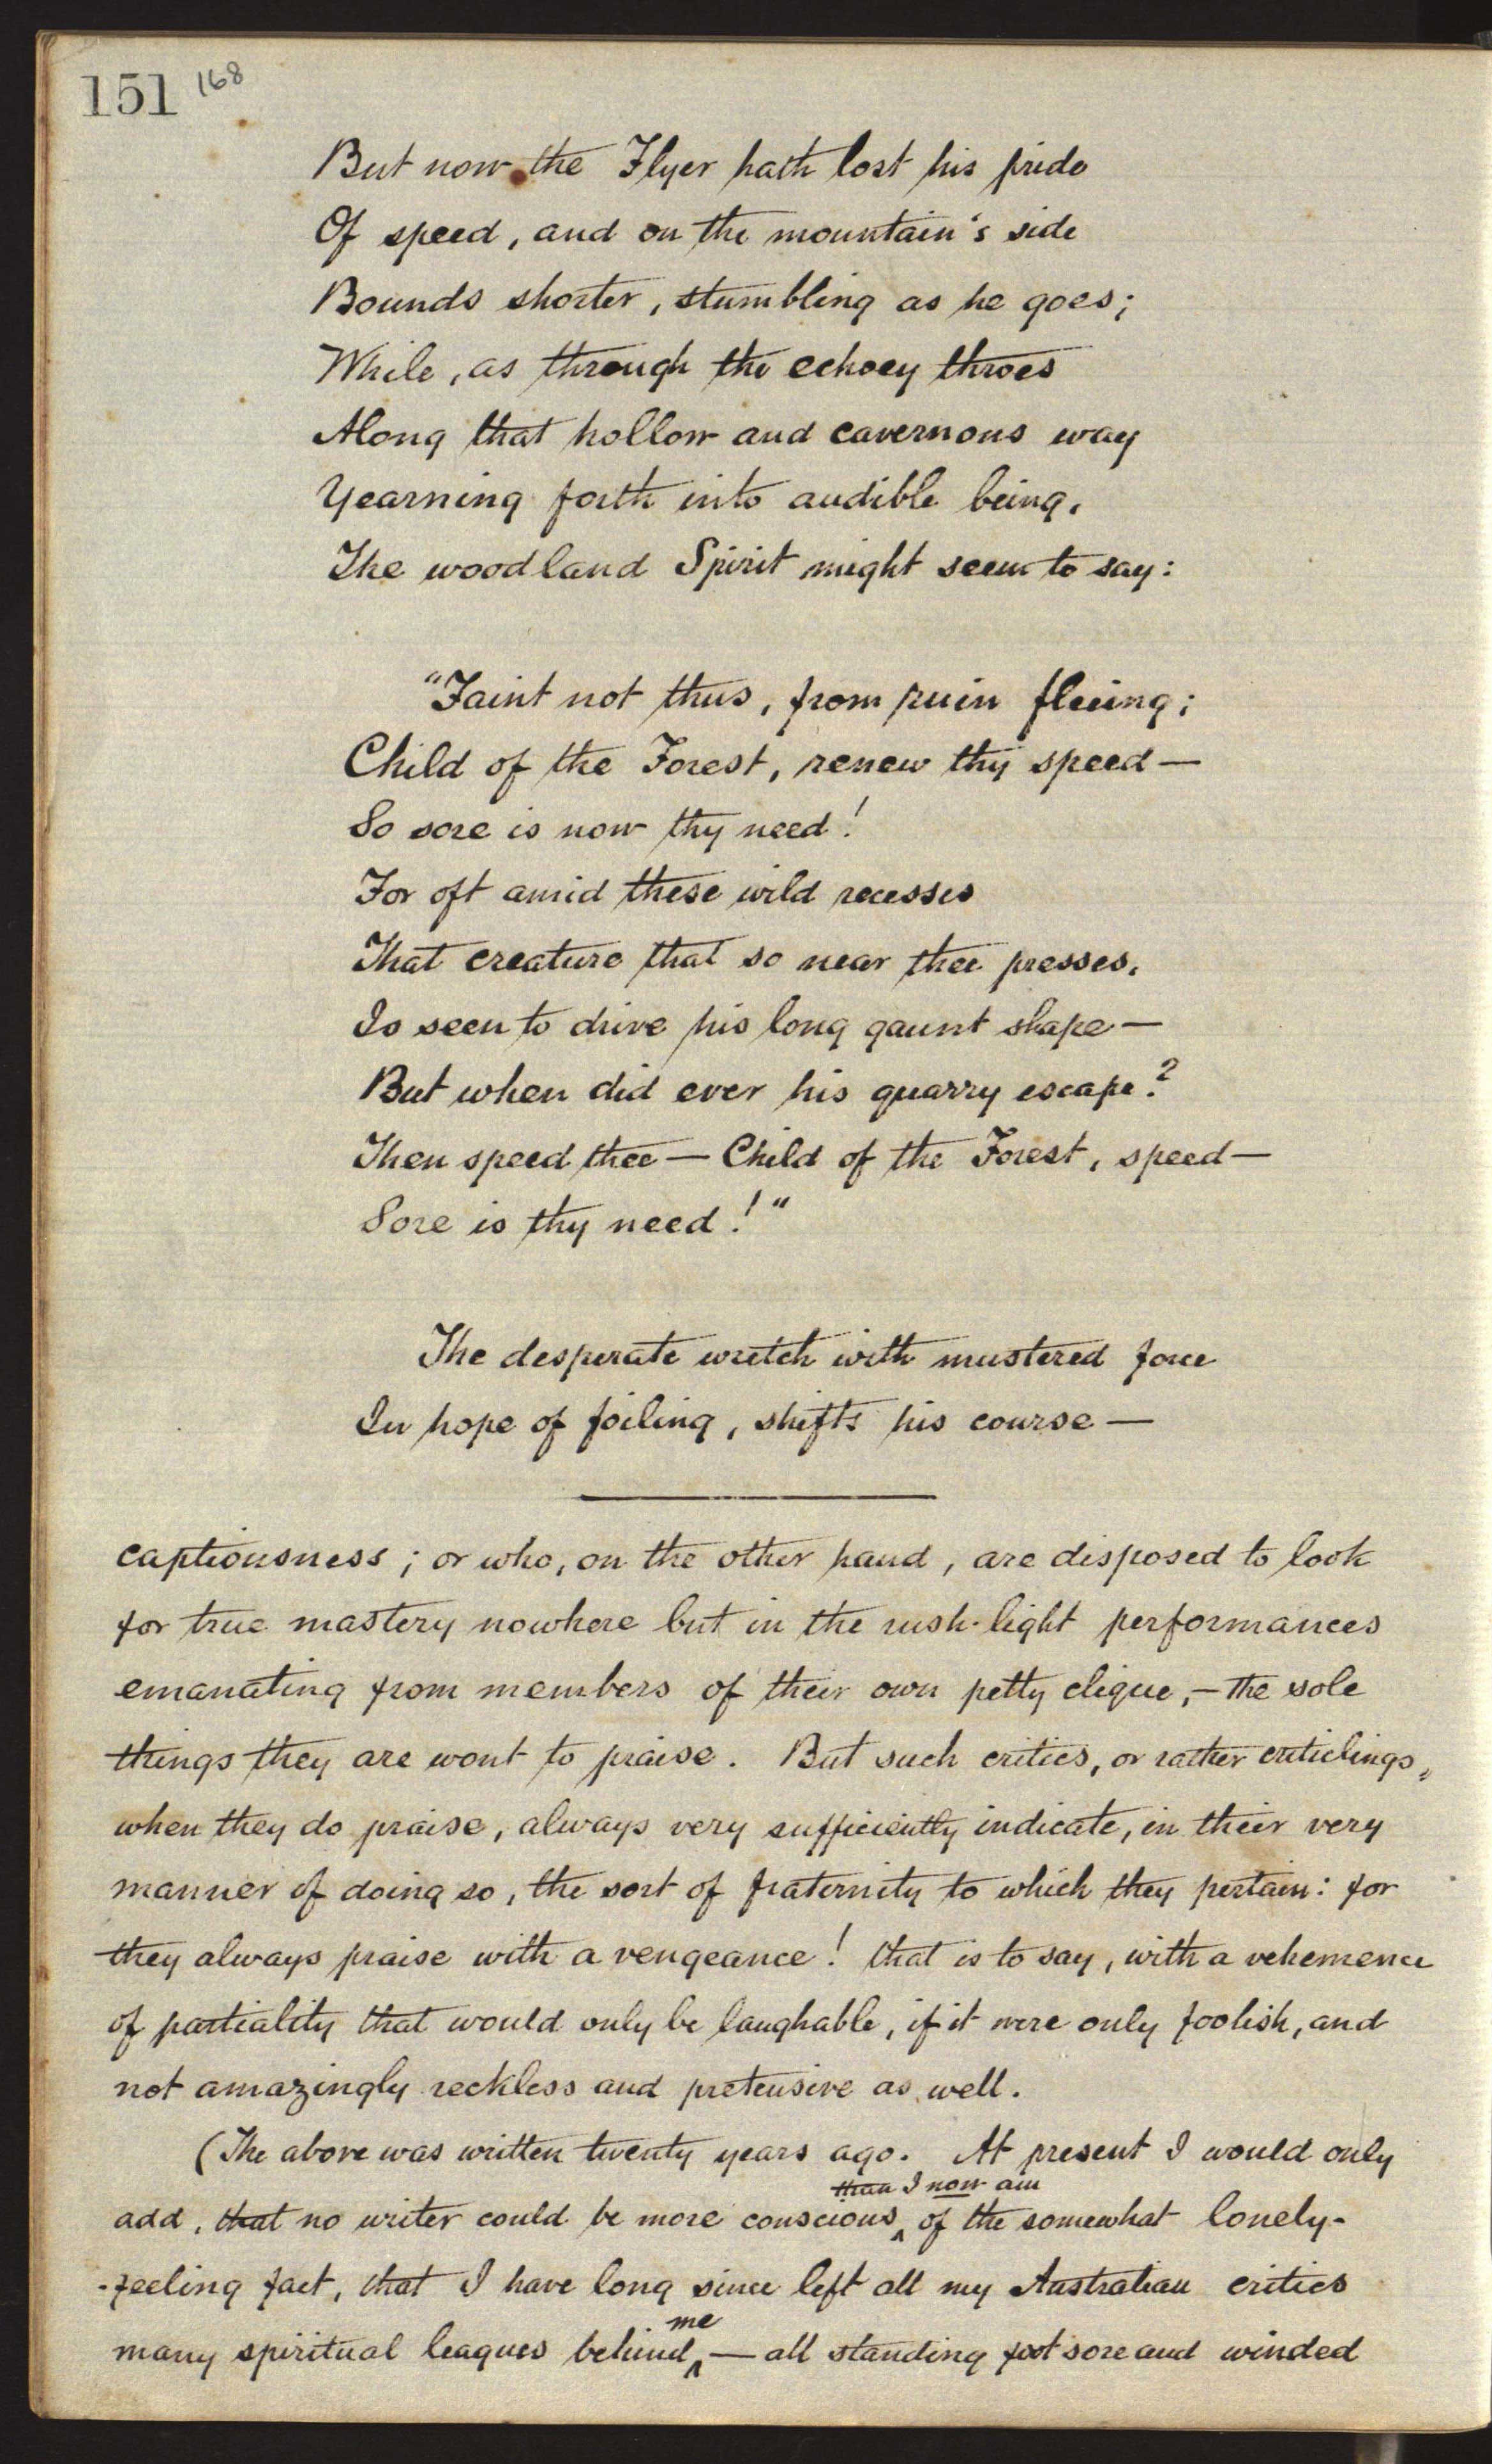 151 168
But now the Flyer hath lost his pride
Of speed, and on the mountain's side
Bounds shorter, stumbling as he goes;
While, as through the echoey throes
Along that hollow and cavernous way
Yearning forth into audible being,
The woodland Spirit might seem to say:
"Faint not thus, from ruin fleeing;
Child of the Forest, renew thy speed—
So sore is now thy need!
For oft amid these wild recesses
That creature that so near thee presses,
Is seen to drive his long gaunt shape—
But when did ever his quarry escape?
Then speed thee — Child of the Forest, speed—
Sore is thy need!"
The desperate wretch with mustered force
In hope of foiling, shifts his course—
captiousness; or who, on the other hand, are disposed to look
for true mastery nowhere but in the rush-light performances
emanating from members of their own petty clique,—the sole
things they are wont to praise. But such critics, or rather criticlings,
when they do praise, always very sufficiently indicate, in their very
manner of doing so, the sort of fraternity to which they pertain: for
they always praise with a vengeance! that is to say, with a vehemence
of partiality that would only be laughable, if it were only foolish, and
not amazingly reckless and pretensive as well.
(The above was written twenty years ago. At present I would only
than I now am
add, that no writer could be more conscious ^ of the somewhat lonely-
-feeling fact, that I have long since left all my Australian critics
me
many spiritual leagues behind ^ — all standing foot sore and winded